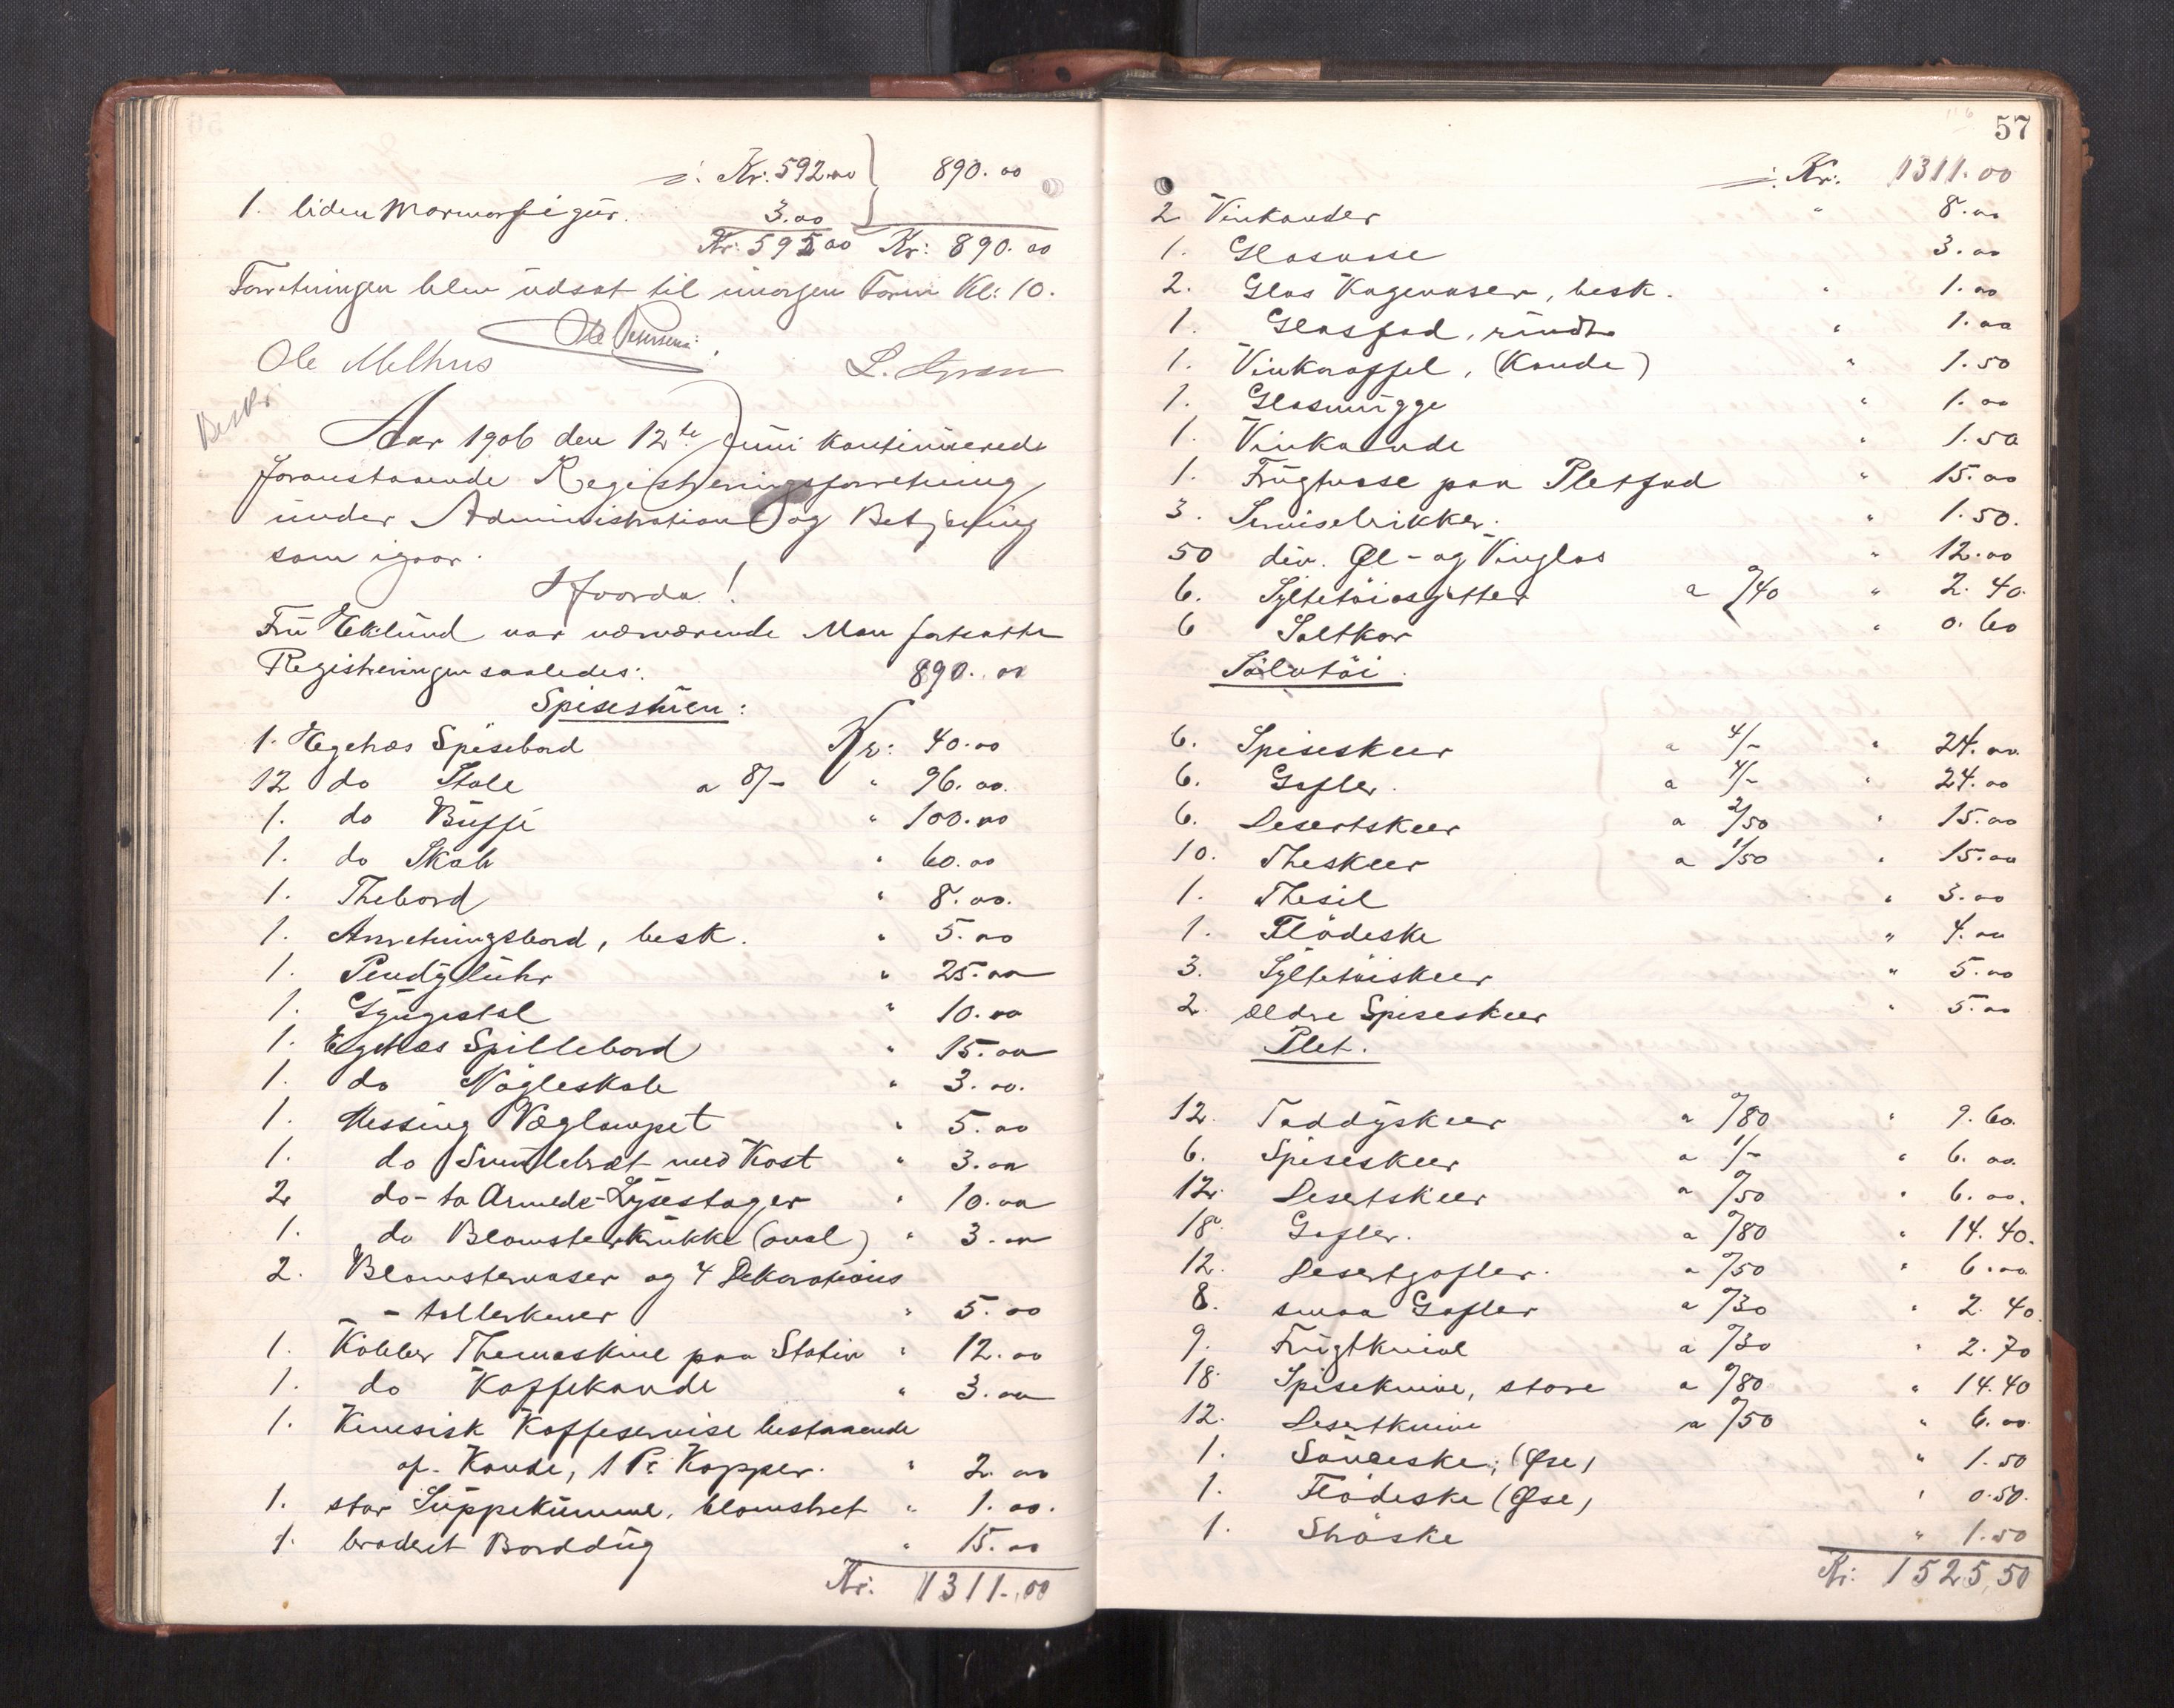 ÷ Kr. 592.00 } 890.00
1. liden Marmorfigur. 3.00
Kr: 595.00 Kr: 890.00
Forretningen blev udsat til imorgen Form Kl: 10.
Ole Pedersen
Ole Melhus L. Gram
Beskr.
Aar 1906 den 12te Juni kontinuerede
foranstaaende Registreringsforretning
under Administration og Betjening
som igaar.
Hvorda!
Fru Eklund var nærværende Man fortsatte
Registreringen saaledes: 890.00
Spisestuen:
1. Egetræs Spisebord Kr: 40.00
12 do Stole a 8/- " 96.00.
1. do Buffé " 100.00
1. do Skab " 60.00
1. Thebord " 8.00.
1. Anretningsbord, besk. " 5.00
1. Pendyluhr " 25.00
1. Gyngestol " 10.00
1. Egetræs Spillebord " 15.00
1. do Nögleskab " 3.00.
1. Messing Væglampet " 5.00
1. do Smulebræt med Kost " 3.00
2 do - to Armede-Lysestager " 10.00
1. do Blomsterkrukke (oval) " 3.00
2. Blomstervaser og 4 Dekorations
- tallerkener " 5.00
1. Kobber Themaskine paa Stativ " 12.00
1. do Kaffekande " 3.00
1. Kinesisk Kaffeservise bestaaende
af. Kande, 1 Pr Kopper. " 2.00
1. stor Suppekumme, blomstret " 1.00.
1. broderet Borddug " 15.00
Kr. 1311.00
57
÷ Kr. 1311.00
2 Vinkander " 8.00
1. Glasvase 3.00
2. Glas Kagevaser, besk. " 1.00
1. Glasfad, rundt " 1.00
1. Vinkaraffel, (Kande) " 1.50
1. Glasmugge " 1.00
1. Vinkande " 1.50
1. Frugtvase paa Pletfad " 15.00
3. Servisebrikker. " 1.50.
50 div. Øl- og Vinglas " 12.00
6. Syltetöiasjetter a 0/40 " 2.40.
6 Saltkar " 0.60
Sölvtöi.
6. Spiseskeer a 4/- " 24.00.
6. Gafler. a 4/- " 24.00
6. Desertskeer a 2/50 " 15.00
10. Theskeer a 1/50 " 15.00
1. Thesil " 3.00
1. Flödeske " 4.00
3. Syltetöiskeer " 5.00
2. ældre Spiseskeer " 5.00
Plet.
12. Toddyskeer a 0/80 " 9.60.
6. Spiseskeer a 1/- " 6.00.
12. Desertskeer a 0/50 " 6.00.
18. Gafler. a 0/80 " 14.40.
12. Desertgafler. a 0/50 " 6.00
8. smaa Gafler a 0/30 " 2.40.
9. Frugtknive a 0/30 " 2.70
18. Spiseknive, store a 0/80 " 14.40
12. Desertknive a 0/50 " 6.00
1. Sauceske, (Øse) " 1.50
1. Flödeske (Øse) " 0.50.
1. Ströske " 1.50
Kr: 1525,50